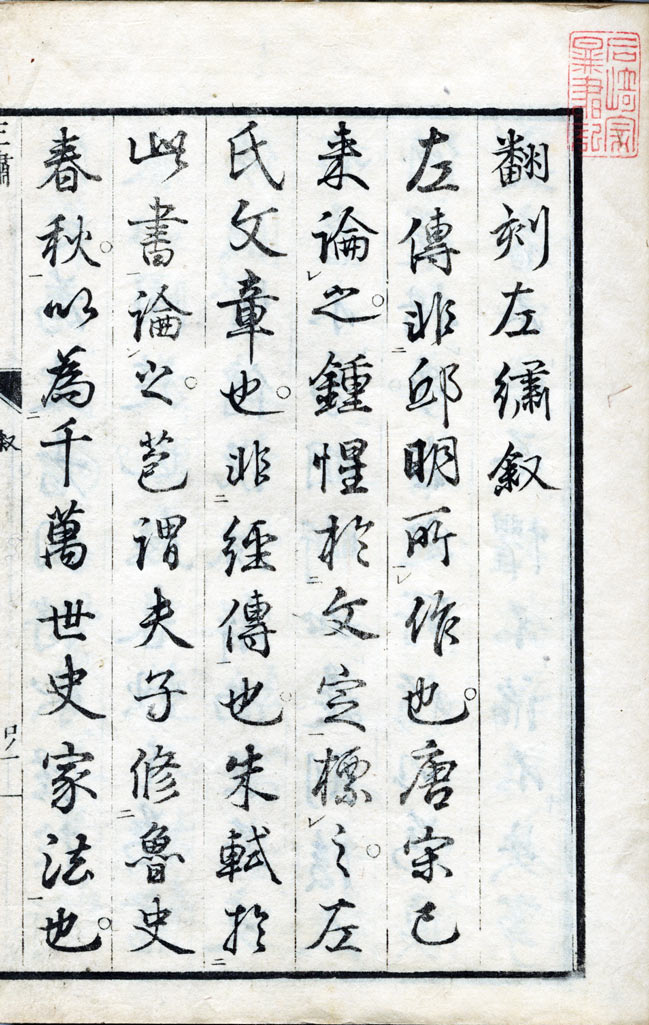 翻刻左繡叙
左傳非邱明所作也。唐宋已
来論之。鍾惺於文定標之。左
氏文章也。非經傳也。朱軾於
此書論之。蓋謂夫子修魯史
春秋。以為千萬世史家法也。
叙
口ノ一